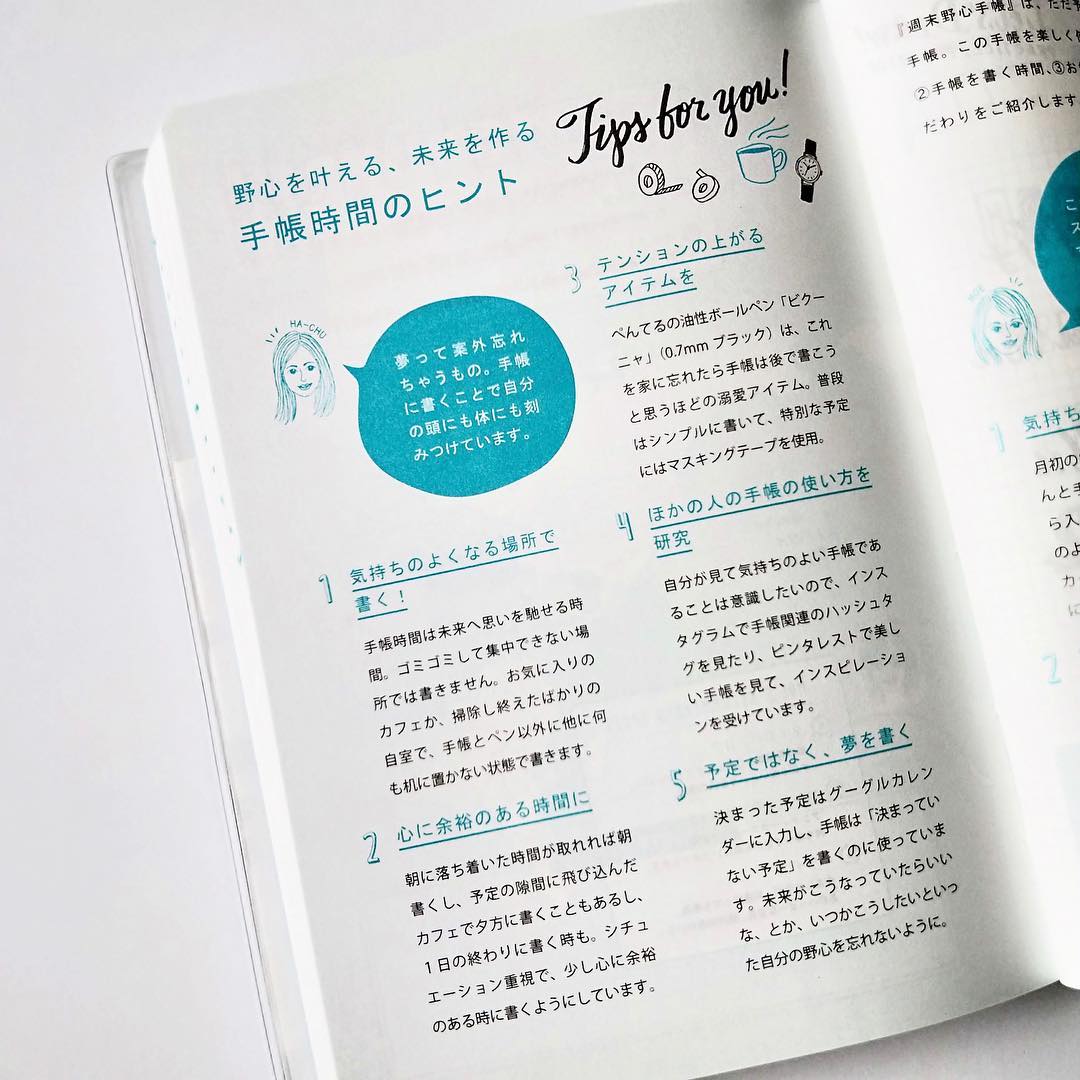 野心を叶える、未来を作る
手帳時間のヒント
Tips for you!
HA-CHU
夢って案外忘れ
ちゃうもの。手帳
に書くことで自分
の頭にも体にも刻
みつけています。
1 気持ちのよくなる場所で
書く！
手帳時間は未来へ思いを馳せる時
間。ゴミゴミして集中できない場
所では書きません。お気に入りの
カフェか、掃除し終えたばかりの
自室で、手帳とペン以外に他に何
も机に置かない状態で書きます。
2 心に余裕のある時間に
朝に落ち着いた時間が取れれば朝
書くし、予定の隙間に飛び込んだ
カフェで夕方に書くこともあるし、
1日の終わりに書く時も。シチュ
エーション重視で、少し心に余裕
のある時に書くようにしています。
3 テンションの上がる
アイテムを
ぺんてるの油性ボールペン「ビクー
ニャ」（0.7mm ブラック）は、これ
を家に忘れたら手帳は後で書こう
と思うほどの溺愛アイテム。普段
はシンプルに書いて、特別な予定
にはマスキングテープを使用。
4 ほかの人の手帳の使い方を
研究
自分が見て気持ちのよい手帳であ
ることは意識したいので、インス
タグラムで手帳関連のハッシュタ
グを見たり、ピンタレストで美し
い手帳を見て、インスピレーショ
ンを受けています。
5 予定ではなく、夢を書く
決まった予定はグーグルカレン
ダーに入力し、手帳は「決まってい
ない予定」を書くのに使っていま
す。未来がこうなっていたらいい
な、とか、いつかこうしたいといっ
た自分の野心を忘れないように。
『週末野心手帳』は、ただ
手帳。この手帳を楽しく
②手帳を書く時間、③お
だわりをご紹介します
こ
ス
1 気持ち
月初の
んと手
ら入
のよ
カ
に
2